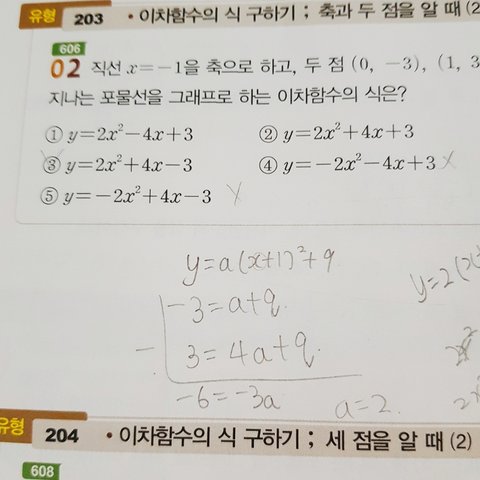 유형 203 • 이차함수의 식 구하기 ; 축과 두 점을 알 때 (2
606
02 직선 x=-1을 축으로 하고, 두 점 (0, -3), (1, 3
지나는 포물선을 그래프로 하는 이차함수의 식은?
① y=2x²-4x+3 ② y=2x²+4x+3
③ y=2x²+4x-3 ④ y=-2x²-4x+3 X
⑤ y=-2x²+4x-3 X
y=a(x+1)²+q
-3=a+q
y=2(x
- 3=4a+q
-6=-3a a=2.
유형 204 • 이차함수의 식 구하기 ; 세 점을 알 때 (2)
608